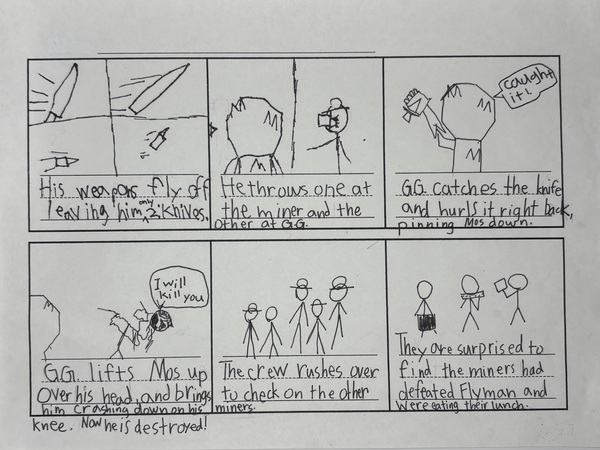 His weapons fly off
leaving him only 2 knives.
He throws one at
the miner and the
other at G.G.
caught
it!
G.G. catches the knife
and hurls it right back,
pinning Mos down.
I will
kill you
G.G. lifts Mos up
over his head, and brings
him crashing down on his
knee. Now he is destroyed!
The crew rushes over
to check on the other
miners.
They are surprised to
find the miners had
defeated Flyman and
were eating their lunch.